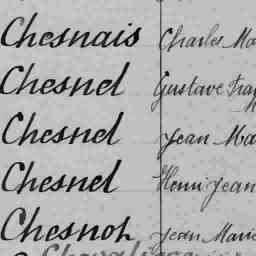 Chesnais Charles Ma
Chesnel Gustave Fran
Chesnel Jean Ma
Chesnel Henri Jean
Chesnot Jean Marie